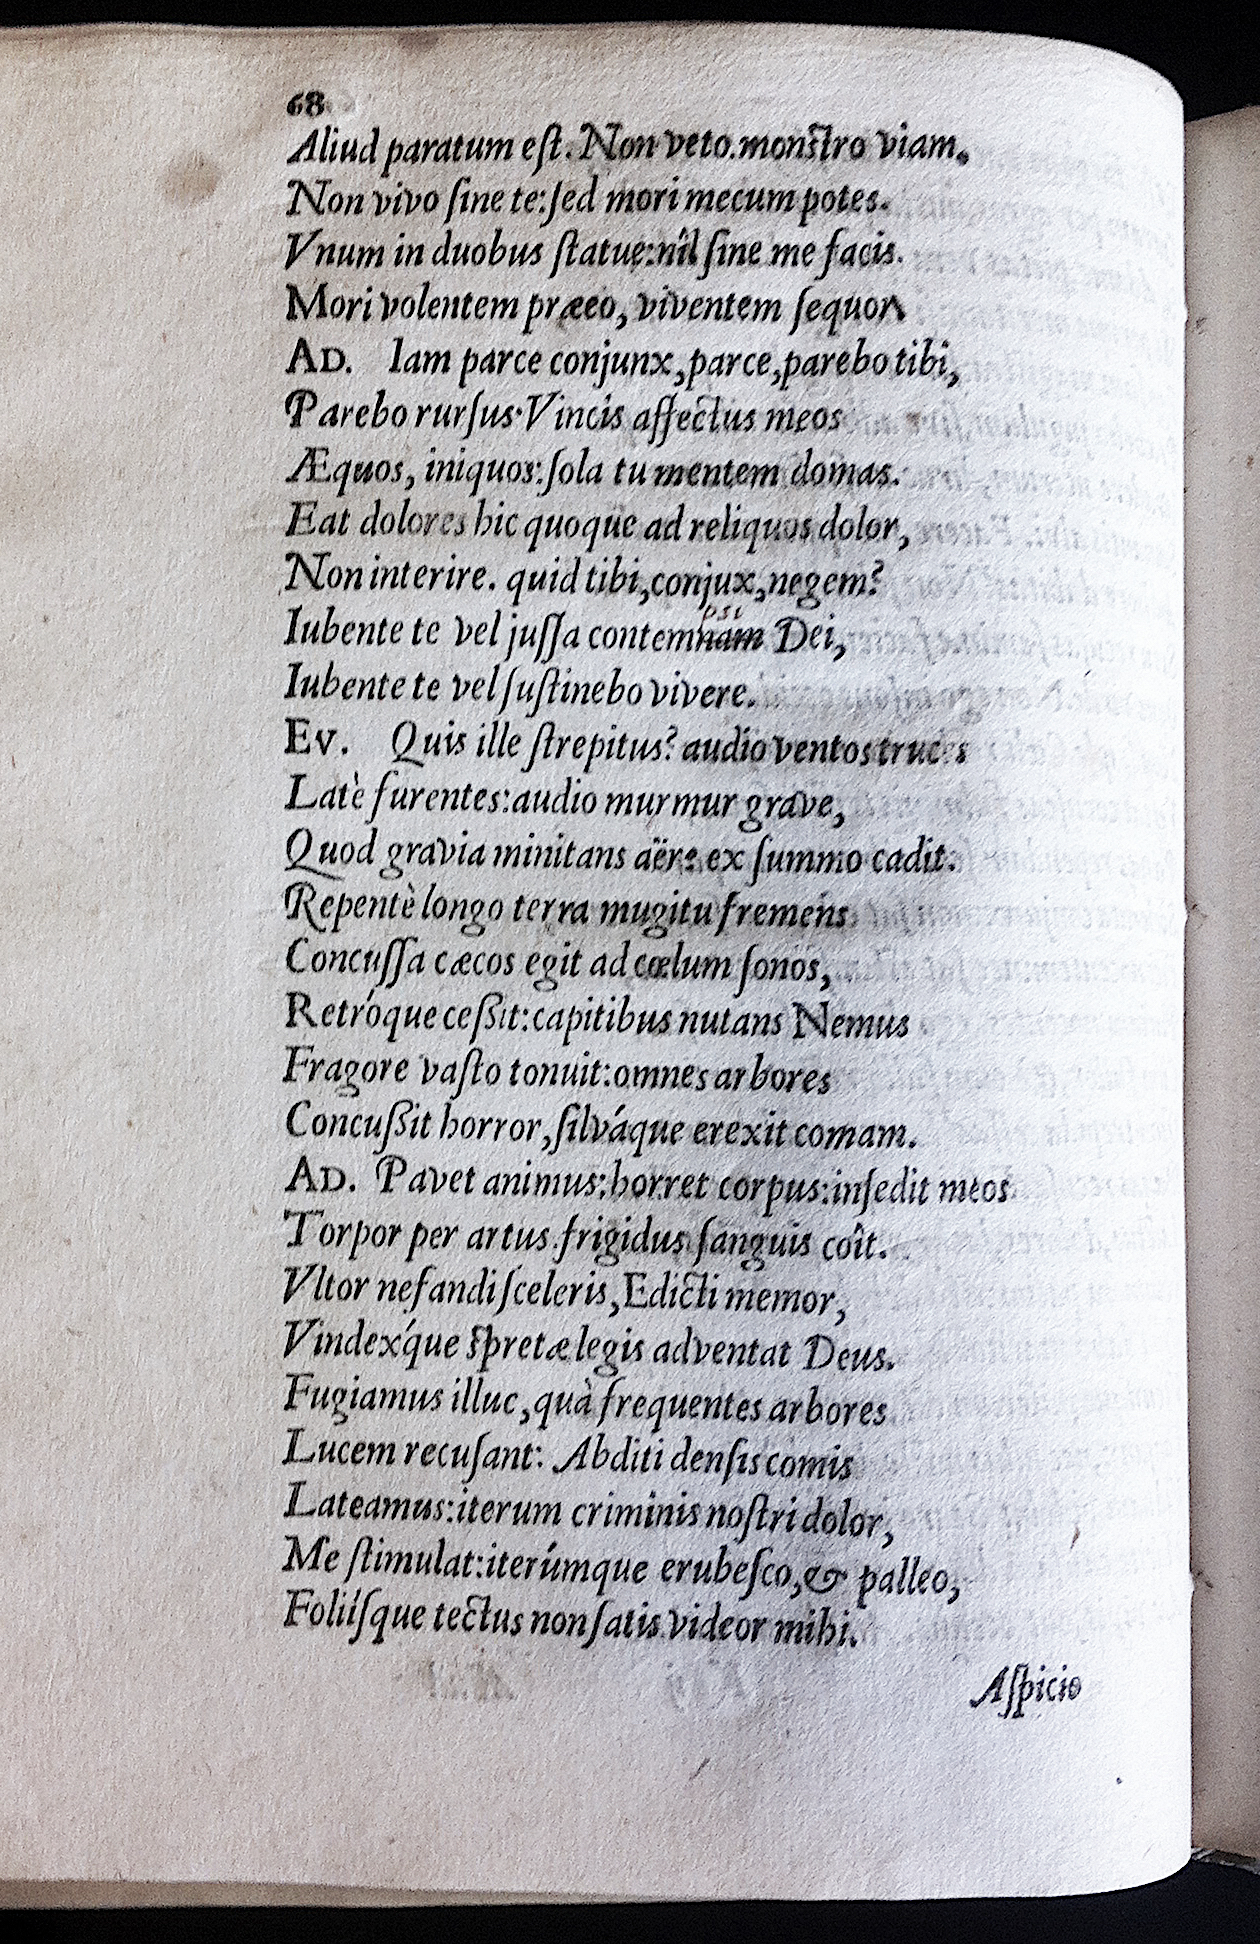 68
Aliud paratum eſt. Non veto. monſtro viam.
Non vivo ſine te: ſed mori mecum potes.
Vnum in duobus ſtatue: nîl ſine me facis.
Mori volentem præeo, viventem ſequor
AD. Iam parce conjunx, parce, parebo tibi,
Parebo rurſus. Vincis affectus meos
Æquos, iniquos: ſola tu mentem domas.
Eat dolores hic quoque ad reliquos dolor,
Non interire. quid tibi, conjux, negem?
psi
Iubente te vel juſſa contemnam Dei,
Iubente te vel ſuſtinebo vivere.
EV. Quis ille ſtrepitus? audio ventos truces
Latè furentes: audio murmur grave,
Quod gravia minitans aëre ex ſummo cadit.
Repentè longo terra mugitu fremens
Concuſſa cæcos egit ad cœlum ſonos,
Retróque ceſſit: capitibus nutans Nemus
Fragore vaſto tonuit: omnes arbores
Concuſſit horror, ſilváque erexit comam.
AD. Pavet animus: horret corpus: inſedit meos
Torpor per artus. frigidus ſanguis coît.
Vltor nefandi ſceleris, Edicti memor,
Vindex́que ſpretæ legis adventat Deus.
Fugiamus illuc, quà frequentes arbores
Lucem recuſant: Abditi denſis comis
Lateamus: iterum criminis noſtri dolor,
Me ſtimulat: iterúmque erubeſco, & palleo,
Foliíſque tectus non ſatis videor mihi.
Aſpicio